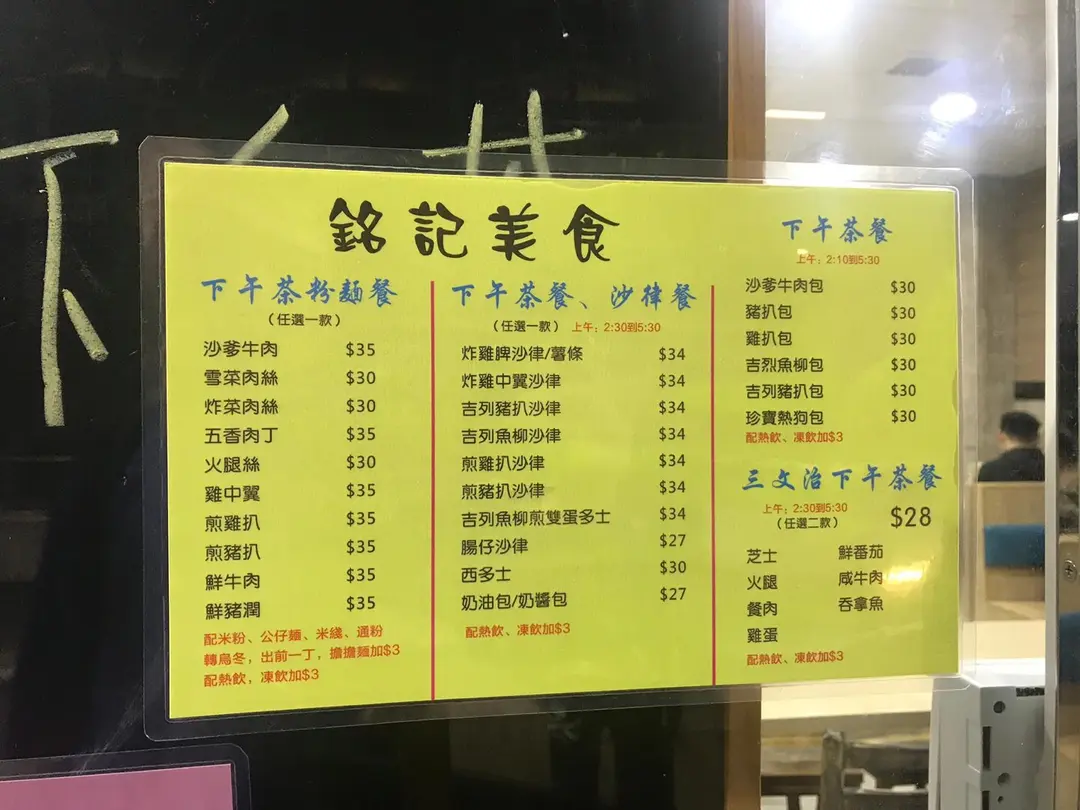 銘記美食
下午茶粉麵餐
（任選一款）
沙爹牛肉 $35
雪菜肉絲 $30
炸菜肉絲 $30
五香肉丁 $35
火腿絲 $30
雞中翼 $35
煎雞扒 $35
煎豬扒 $35
鮮牛肉 $35
鮮豬潤 $35
配米粉、公仔麵、米綫、通粉
轉烏冬，出前一丁，擔擔麵加$3
配熱飲，凍飲加$3
下午茶餐、沙律餐
（任選一款） 上午：2:30到5:30
炸雞脾沙律/薯條 $34
炸雞中翼沙律 $34
吉列豬扒沙律 $34
吉列魚柳沙律 $34
煎雞扒沙律 $34
煎豬扒沙律 $34
吉列魚柳煎雙蛋多士 $34
腸仔沙律 $27
西多士 $30
奶油包/奶醬包 $27
配熱飲、凍飲加$3
下午茶餐
上午：2:10到5:30
沙爹牛肉包 $30
豬扒包 $30
雞扒包 $30
吉烈魚柳包 $30
吉列豬扒包 $30
珍寶熱狗包 $30
配熱飲、凍飲加$3
三文治下午茶餐
上午：2:30到5:30
（任選二款） $28
芝士 鮮番茄
火腿 咸牛肉
餐肉 吞拿魚
雞蛋
配熱飲、凍飲加$3
下